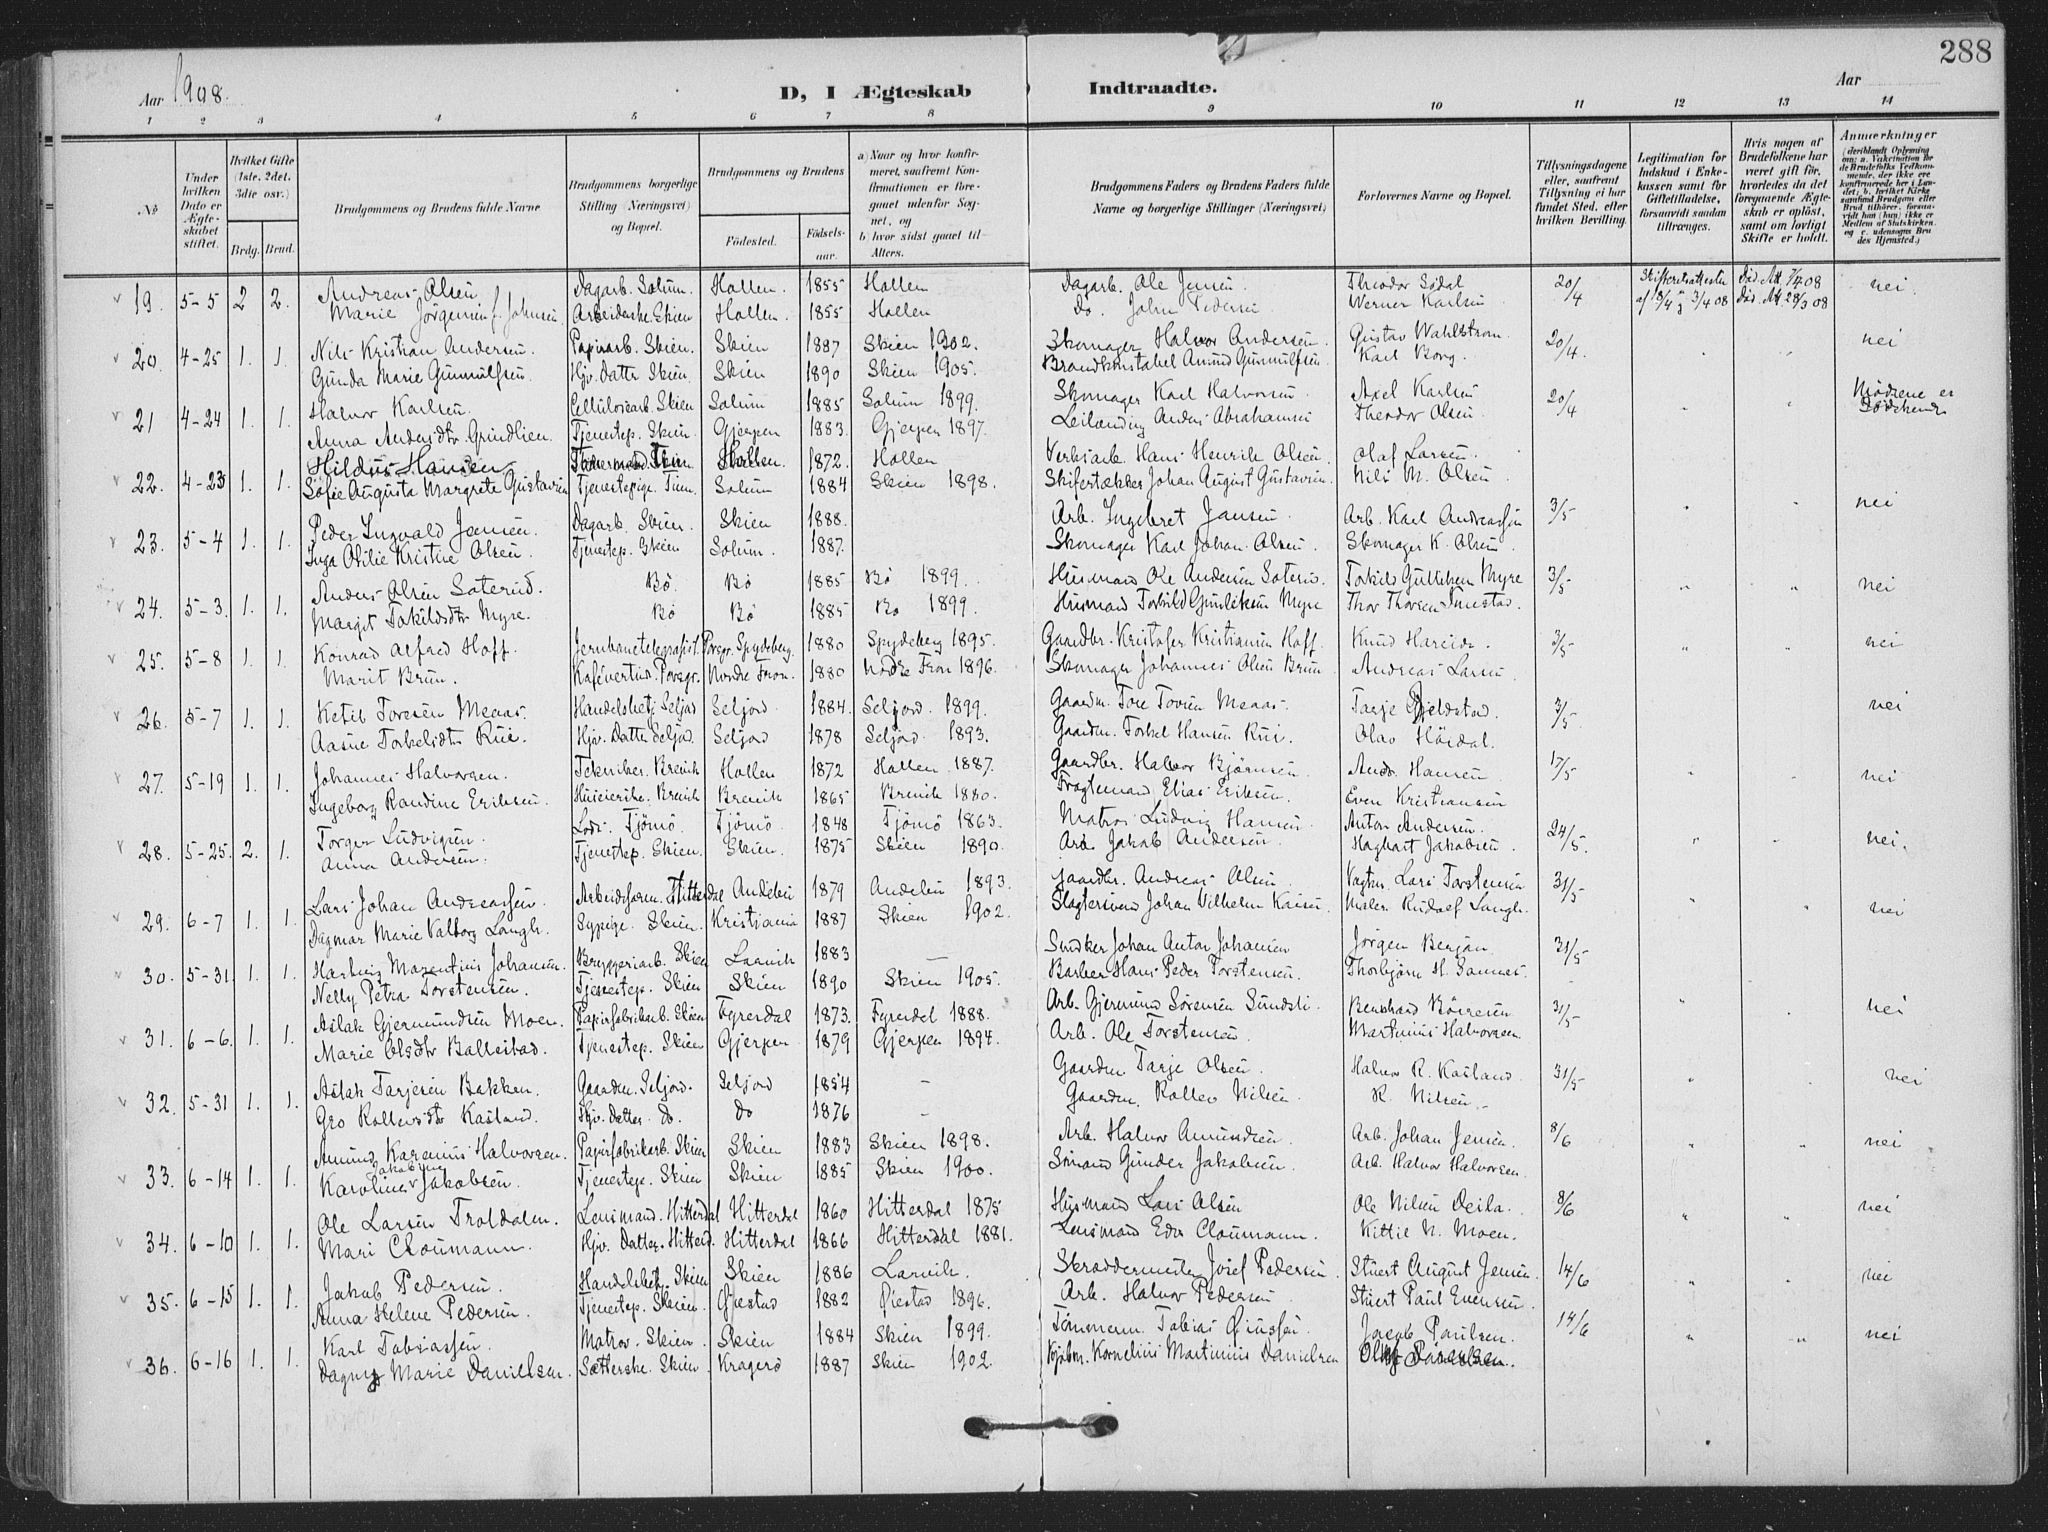 288
Aar 1908. D, I Ægteskab Indtraadte. Aar
1 2 3 4 5 6 7 8 9 10 11 12 13 14
No
Under hvilken Dato er Ægteskabet stiftet.
Hvilket Gifte (1ste, 2det, 3die osv.)
Brdg. Brud.
Brudgommens og Brudens fulde Navne
Brudgommens borgerlige Stilling (Næringsvei) og Bopæl.
Brudgommens og Brudens
Fødested. Fødselsaar.
a) Naar og hvor konfirmeret, saafremt Konfirmationen er foregaaet udenfor Sognet, og
b) hvor sidst gaaet til Alters.
Brudgommens Faders og Brudens Faders fulde Navne og borgerlige Stillinger (Næringsvei)
Forlovernes Navne og Bopæl.
Tillysningsdagene eller, saafremt Tillysning ei har fundet Sted, efter hvilken Bevilling.
Legitimation for Indskud i Enkekassen samt for Giftetilladelse, forsaavidt saadan tiltrænges.
Hvis nogen af Brudefolkene har været gift før, hvorledes da det foregaaende Ægteskab er opløst, samt om lovligt Skifte er holdt.
Anmærkninger
19. 5-5 2 2. Andreas Olsen Dagarb. Solum. Hollen. 1855 Hollen Dagarb. Ole Jensen Theodor Sødal 20/4 nei.
Marie Jørgensen f. Johnsen Arbeiderske. Skien Hollen. 1855 Hollen Do. John Pedersen Werner Karlsen
20. 4-25 1. 1. Nils Kristian Andersen. Papirarb. Skien. Skien 1887 Skien 1902. Skomager Halvor Andersen Gustav Wahlstrøm 20/4. nei
Gunda Marie Gunnulfsen. Hjv. Datter Skien. Skien 1890 Skien 1905. Brandkonstabel Amund Gunnulfsen Karl Borg.
21 4-24 1. 1. Halvor Karlsen. Cellulosearb. Skien Solum 1885 Solum 1899. Skomager Karl Halvorsen Axel Karlsen 20/4
Anna Andersdtr Grindlien. Tjenestep. Skien Gjerpen 1883. Gjerpen 1897. Leilænding Anders Abrahamsen Theodor Olsen
22. 4-23 1. 1. Hildus Hansen Hollen. 1872. Hollen Verksarb. Hans Henrik Olsen. Olaf Larsen.
Sofie Augusta Margrete Gustavsen Tjenestepige. Solum 1884 Skien 1898. Skifertækker Johan August Gustavsen. Nils M. Olsen
23. 5-4 1. 1. Peder Ingvald Jansen Dagarb. Skien. Skien 1888. Arb. Ingebret Jansen Arb. Karl Andreassen 3/5 nei
Inga Otilie Kristine Olsen Tjenestep. Skien Solum. 1887. Skomager Karl Johan Olsen Skomager K. Olsen
24. 5-3. 1. 1. Anders Olsen Soterud. Bø Bø 1885 Bø 1899. Husmand Ole Andersen 3/5 nei
Margit Torkildsdtr Myre. Bø Bø 1885 Bø 1899. Husmand Torkild Gunleiksen Myre Thor Thorsen
25. 5-8 1. 1. Konrad Alfred Hoff. Jernbanetelegrafist. Porsgr. Spydeberg. 1880 Spydeberg 1895. Gaardbr. Kristofer Kristiansen Hoff. Knud Hareide. 3/5 nei
Marit Brun. Kafévertin. Porsgr. Nordre Fron. 1880 Nordre Fron 1896. Skomager Johannes Olsen Brun Andreas Larsen
26. 5-7 1. 1. Ketil Toresen Meaas. Handelsbetj. Seljord Seljord 1884. Seljord. 1899. Gaardm. Tore Meaas. Tarje Gjeldstad. 3/5 nei
Aasne Torkelsdtr Rue. Hjv. Datter Seljord. Seljord 1878 Seljord. 1893. Gaardm. Torkel Hansen Rue. Olav
27. 5-19 1. 1. Johannes Halvorsen. Tekniker. Brevik Hollen 1872 Hollen. 1887. Gaardbr. Halvor Bjørnsen Andr. Hansen 17/5 nei
Ingeborg Randine Eriksen. Brevik Brevik 1865 Brevik 1880. Fragtemand Elias Eriksen. Even Kristiansen
28. 5-25. 2. 1. Torger Ludvigsen. Lods. Tjømø. Tjømø 1848 Tjømø 1863. Matros Ludvig Hansen Anton Andersen. 24/5. nei.
Anna Andersen. Tjenestep. Skien. Skien. 1875 Skien 1890. Arb. Jakob Andersen. Hagbart Jakobsen
29. 6-7 1. 1. Lars Johan Andreassen Hitterdal Andebu 1879 Andebu 1893. Gaardbr. Andreas Olsen Lars Torstensen 31/5 nei
Dagmar Marie Valborg Langh. Sypige. Skien. Kristiania 1887 Skien 1902. Slagtersvend Johan Vilhelm Maler. Rudolf Langh.
30. 5-31 1. 1. Hartvig Marentius Johansen. Bryggeriarb. Skien Larvik 1883 — Johan Anton Johansen Jørgen Bergan 31/5
Nelly Petra Torstensen. Tjenestep. Skien Skien 1890 Skien 1905. Barber Hans Peder Torstensen. Thorbjørn H. Sannes.
31. 6-6. 1. 1. Aslak Gjermundsen Moen. Papirfabrikarb. Skien Fyresdal 1873. Fyresdal 1888. Arb. Gjermund Sørensen Sundsli. Bernhard 31/5 nei
Marie Olsdtr Ballestad. Tjenestep. Skien Gjerpen 1879 Gjerpen 1894. Arb. Ole Torstensen. Martinius Halvorsen.
32. 5-31 1. 1. Aslak Tarjesen Bakken. Gaardm. Seljord. Seljord 1854 - Gaardm Tarje Olsen. Halvor R. Kasland 31/5 nei
Gro Rollevsdtr Kasland. Hjv. Datter. do. do 1876 - Gaardm. Rollev Nilsen. R. Nilsen
33. 6-14 1. 1. Amund Karenius Halvorsen. Papirfabrikarb. Skien Skien 1883 Skien 1898. Arb. Halvor Amundsen. Arb. Johan Jensen. 8/6 nei
Karoline Jakobine Jakobsen. Tjenestep. Skien Skien 1885 Skien 1900. Sømand Gunder Jakobsen Arb. Halvor Halvorsen
34. 6-10 1. 1. Ole Larsen Troldalen. Lensmand. Hitterdal Hitterdal 1860 Hitterdal 1875 Husmand Lars Olsen Ole Nilsen 8/6 nei
Mari Cloumann. Hjv. Datter. Hitterd. Hitterdal 1866 Hitterdal 1881. Lensmand Edv. Cloumann. Kittil N. Moen.
35. 6-15 1. 1. Jakob Pedersen Handelsbetj. Skien Skien 1886 Larvik. Skræddermester Josef Pedersen. Stuert August Jensen. 14/6 nei
Anna Helene Pedersen. Tjenestep. Skien. Øiestad 1882 Øiestad 1896. Arb. Halvor Pedersen Stuert Paul Evensen.
36. 6-16 1. 1. Karl Tobiassen. Matros. Skien. Skien 1884 Skien 1899. Tømmerm. Tobias Jacob Paulsen. 14/6 nei
Dagny Marie Danielsen. Sætterske. Skien. Kragerø 1887 Skien 1902. Kornelius Martinius Danielsen